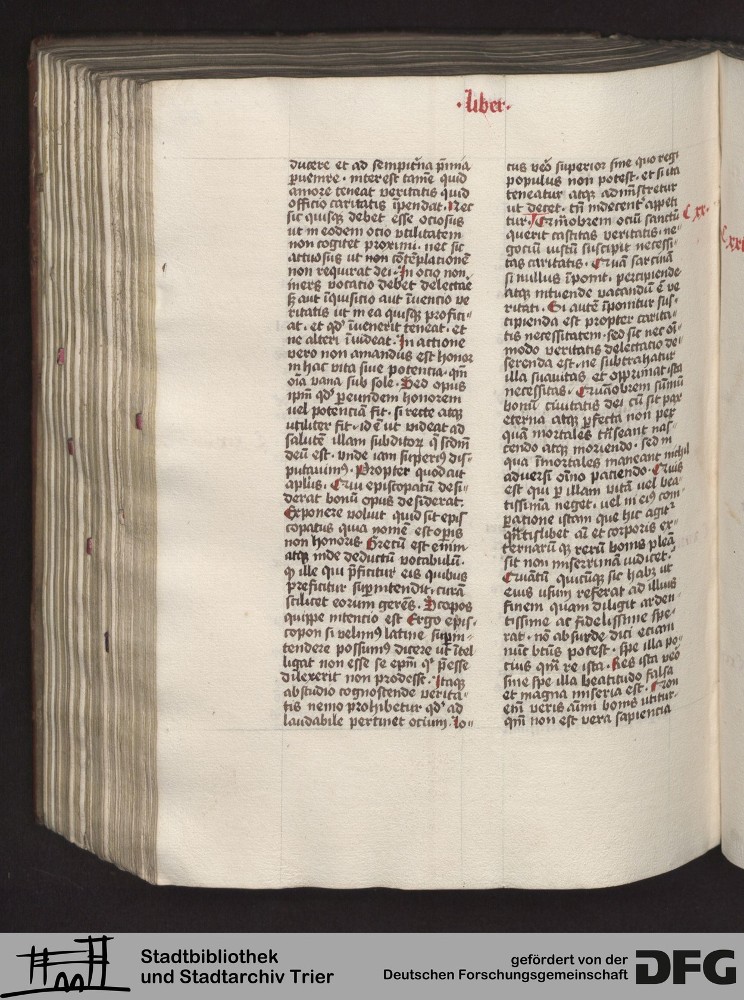 ·liber·
ducere et ad sempit̄na p̄mia
ꝑuenire · interest tamē quid
amore teneat veritatis quid
officio caritatis īpendat. Nec
sic quisꝗ debet esse ociosus
ut in eodem ocio vtilitatem
non cogitet proximi. nec sic
actuosus ut non cōtēplationē
non requirat dei. In ocio non
iners vocatio debet delectare
aut īquisicio aut īuencio ve
ritatis ut in ea quisꝗ profici-
at. et qd' īuenerit teneat. et
ne alteri īuideat. In actione
vero non amandus est honor
in hac vita siue potencia. qm̄
oīa vana sub sole. Sed opus
ipm̄ qd' ꝑ eundem honorem
uel potenciā fit. si recte atꝗ
vtiliter fit. id ē ut videat ad
salutē illam subditorꝝ q̄ scdm̄
deū est. vnde iam superiꝰ dis-
putauimꝰ. Propter quod ait
apl̄us. Qui episcopatū desi-
derat bonū opus desiderat.
Exponere voluit quid sit epis
copatus quia nomē est opis
non honoris Grecū est enim
atꝗ inde deductū vocabulū.
ꝙ ille qui p̄ficitur eis quibus
preficitur suꝑintendit. curā
scilicet eorum gerēs. Scopos
quippe intencio est Ergo epis-
copon si velimꝰ latine suꝑin-
tendere possumꝰ dicere ut ītel-
ligat non esse se epm̄ qͥ p̄esse
dilexerit non prodesse. Itaꝗ
ab studio cognoscende verita-
tis nemo prohibetur qd' ad
laudabile pertinet ocium. Lo-
cus ūo superior sine quo regi
populus non potest. et si ita
teneatur atꝗ admīstretur
ut decet. tn̄ indecent' appeti
tur. Quāobrem ociū sanctū
querit caritas veritatis. ne-
gociū iustū suscipit necessi-
tas caritatis. Quā sarcinā
si nullus īponit. percipiende
atꝗ intuende vacandū ē ve
ritati. Si autē īponitur sus-
cipienda est propter carita-
tis necessitatem. sed sic nec oī-
modo veritatis delectacio de-
serenda est. ne subtrahatur
illa suauitas et opprimat ista
necessitas. Quāobrem sūmū
bonū ciuitatis dei cū sit pax
eterna atꝗ ꝑfecta non per
quā mortales trāseant nas-
cendo atꝗ moriendo. sed in
qua īmortales maneant nichil
aduersi oīno paciendo. Quis
est qui ꝑ illam vitā uel bea-
tissimā neget. uel in eiꝰ com-
paratione istam que hic agit
qn̄tislibet aī et corporis ex-
ternarūꝗ rerū bonis plenā
sit non miserrimā iudicet.
Quātū quicūꝗ sic habꝫ ut
eius usum referat ad illius
finem quam diligit arden-
tissime ac fidelissime spe-
rat. nō absurde dici eciam
nunc btūs potest. spe illa po-
cius qm̄ re ista. Res ista ūo
sine spe illa beatitudo falsa
et magna miseria est. Non
em̄ veris aīmi bonis utitur.
qm̄ non est vera sapiencia
C xx.
C xxi
Stadtbibliothek
und Stadtarchiv Trier
gefördert von der
Deutschen Forschungsgemeinschaft
DFG